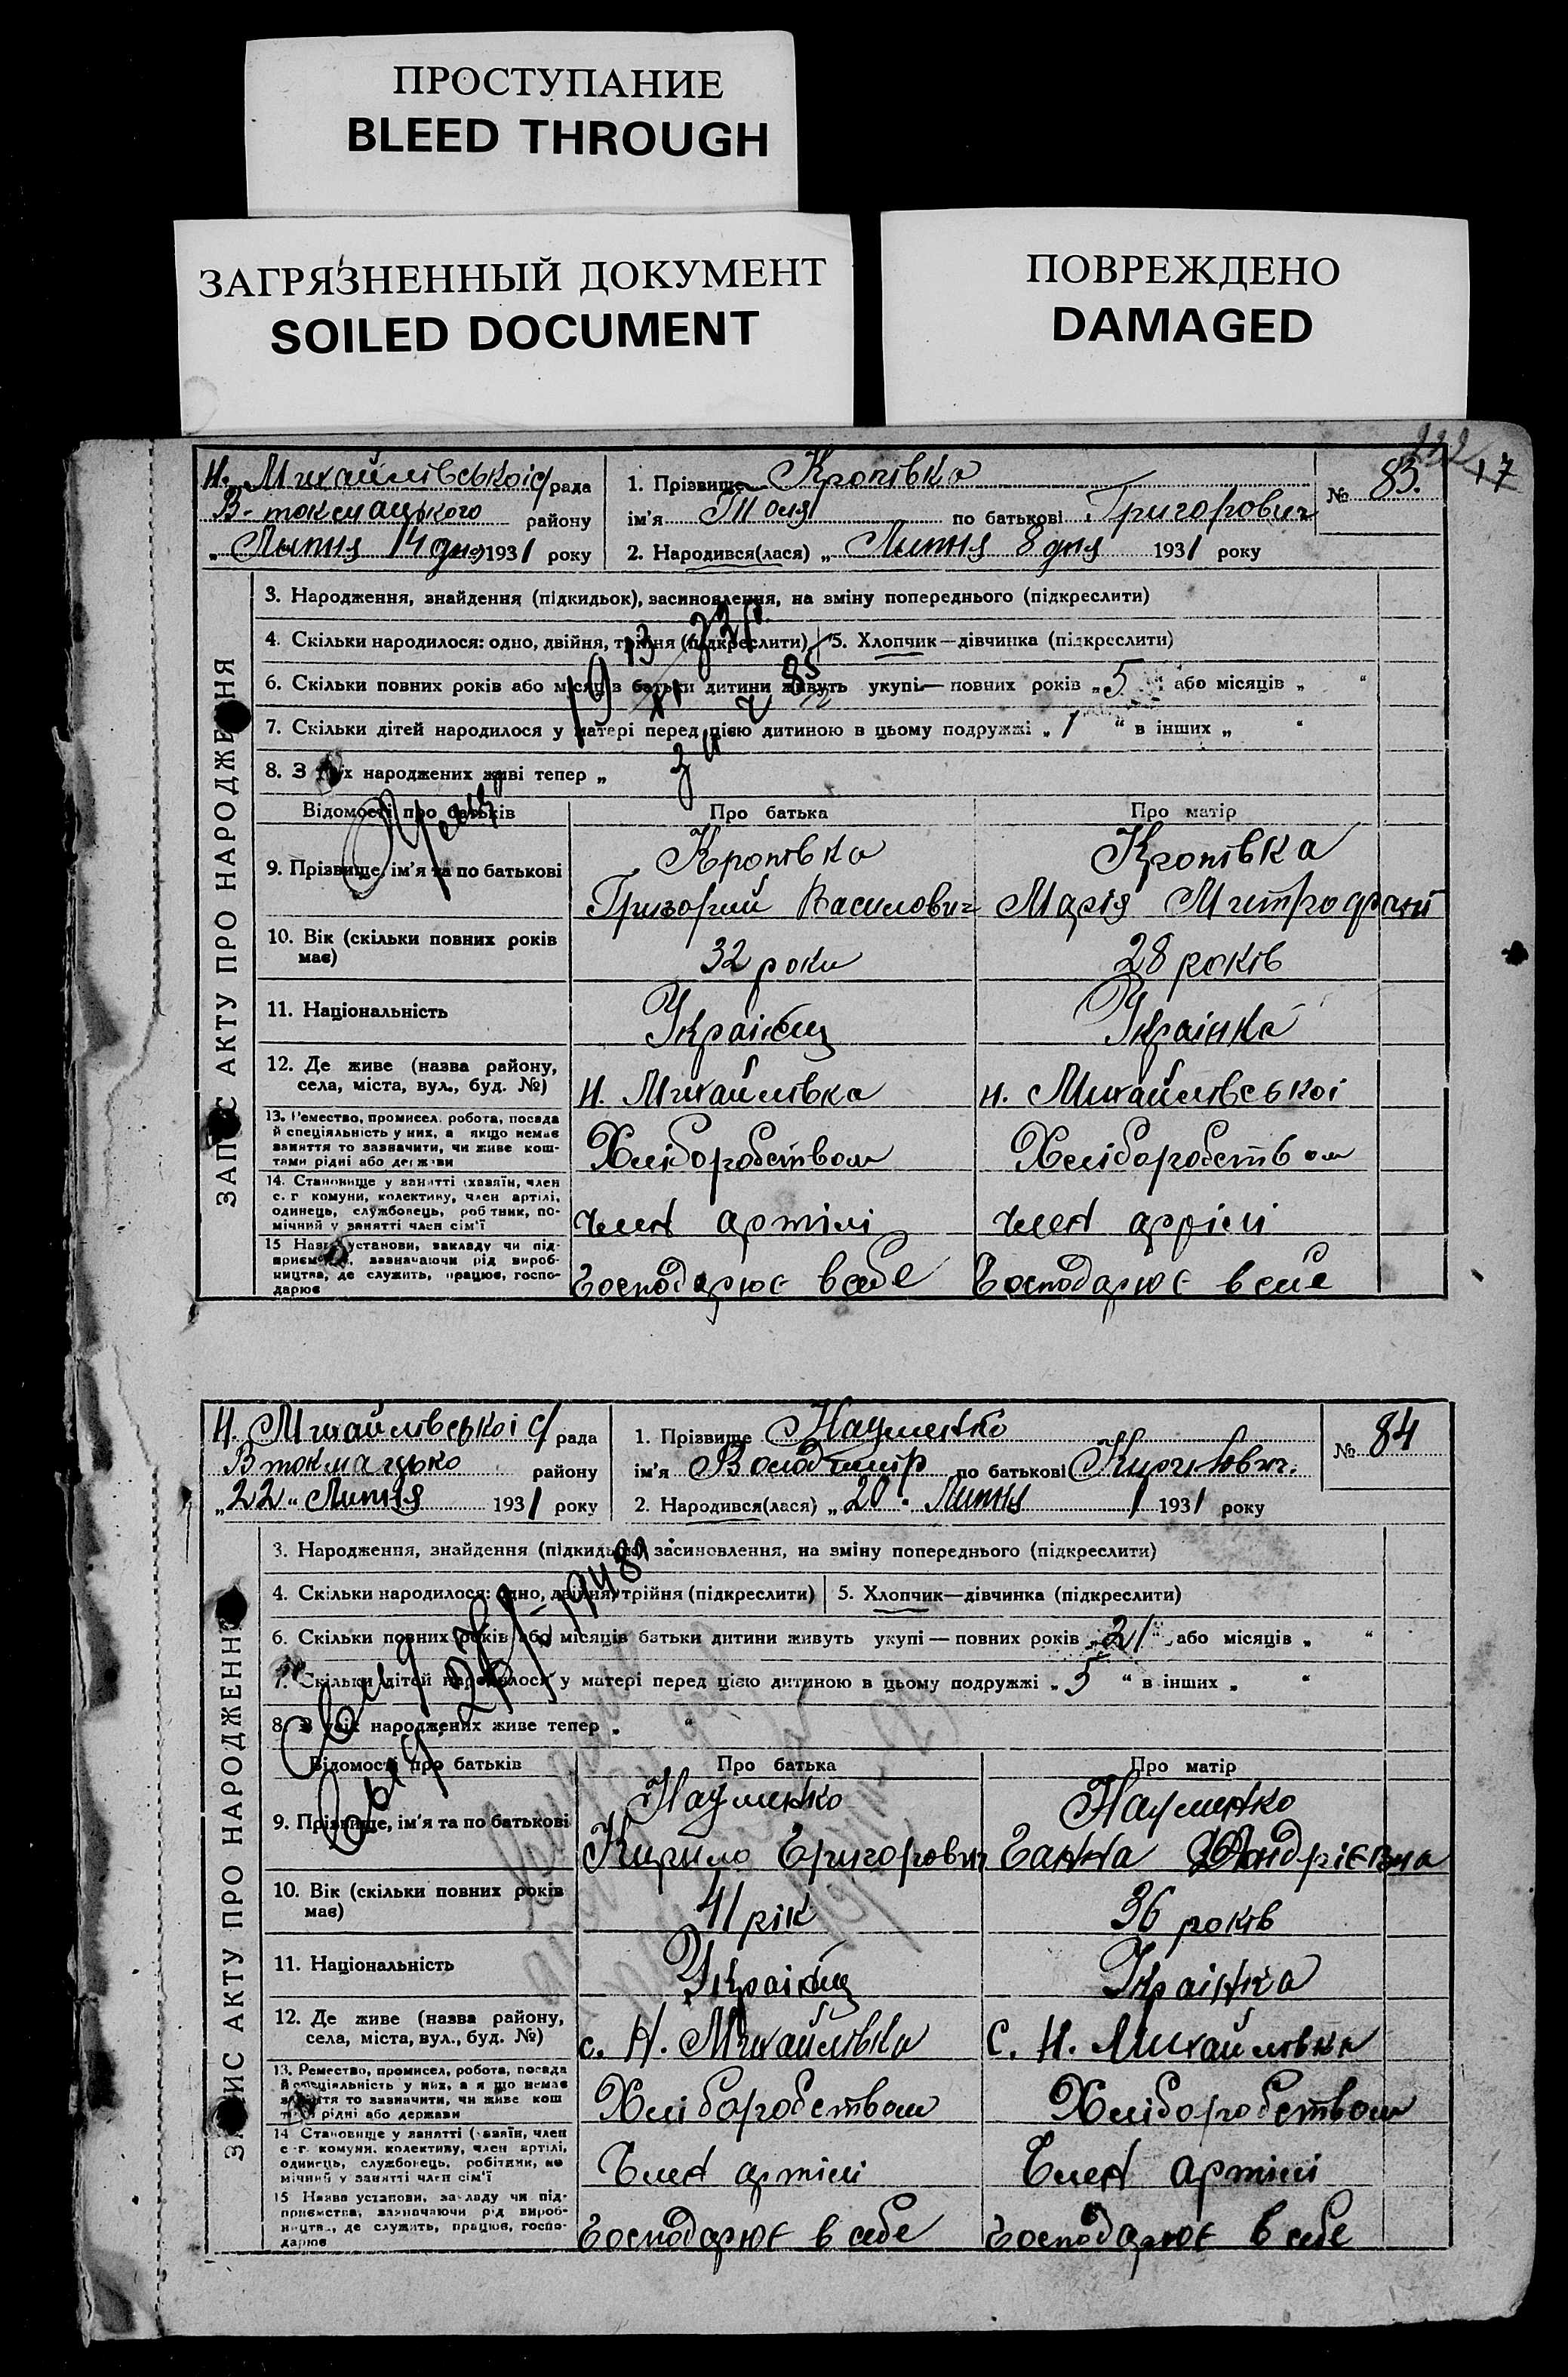 ПРОСТУПАНИЕ
BLEED THROUGH
ЗАГРЯЗНЕННЫЙ ДОКУМЕНТ
SOILED DOCUMENT
ПОВРЕЖДЕНО
DAMAGED
17
Н. Михайлівськоі с/рада
В-токмацького району
„Липня 14 дня 1931 року
1. Прізвище Кропівка
ім'я Толя по батькові Григорович
2. Народився(лася) „Липня 8 дня 1931 року
№ 83.
ЗАПИС АКТУ ПРО НАРОДЖЕННЯ
3. Народження, знайдення (підкидьок), засиновлення, на зміну попереднього (підкреслити)
4. Скільки народилося: одно, двійня, трійня (підкреслити) 5. Хлопчик—дівчинка (підкреслити)
6. Скільки повних років або місяців батьки дитини живуть укупі— повних років „5“ або місяців „ “
7. Скільки дітей народилося у матері перед цією дитиною в цьому подружжі „1“ в інших „ “
8. З усіх народжених живі тепер „
Відомості про батьків Про батька Про матір
9. Прізвище, ім'я та по батькові
Кропівка Кропівка
Григорий Василович Марія Митрофані
10. Вік (скільки повних років має) 32 роки 28 років
11. Національність Украінец Украінка
12. Де живе (назва району, села, міста, вул., буд. №) Н. Михайлівка Н. Михайлівськоі
13. Ремество, промисел, робота, посада
й спеціяльність у них, а якщо немає
заняття то зазначити, чи живе кош-
тами рідні або держави
Хліборобством Хліборобством
14. Становище у занятті (хазяїн, член
с.-г. комуни, колективу, член артілі,
одинець, службовець, робітник, по-
мічний у занятті член сім'ї
член артілі член артілі
15 Назва установи, закладу чи під-
приємства, зазначаючи рід вироб-
ництва, де служить, працює, госпо-
дарює
Господарює в себе Господарює в себе
Н. Михайлівськоі с/рада
В токмацько району
„22“ Липня 1931 року
1. Прізвище Науменко
ім'я Володимір по батькові Кирилович.
2. Народився(лася) „20“ Липня 1931 року
№ 84
ЗАПИС АКТУ ПРО НАРОДЖЕННЯ
3. Народження, знайдення (підкидьок), засиновлення, на зміну попереднього (підкреслити)
4. Скільки народилося: одно, двійня, трійня (підкреслити) 5. Хлопчик—дівчинка (підкреслити)
6. Скільки повних років або місяців батьки дитини живуть укупі — повних років „21“ або місяців „ “
7. Скільки дітей народилося у матері перед цією дитиною в цьому подружжі „5“ в інших „ “
8. З усіх народжених живе тепер „ “
Відомості про батьків Про батька Про матір
9. Прізвище, ім'я та по батькові
Науменко Науменко
Кирило Григорович Ганна Андрієвна
10. Вік (скільки повних років має) 41 рік 36 років
11. Національність Украінец Украінка
12. Де живе (назва району, села, міста, вул., буд. №) с. Н. Михайлівка С. Н. Михайлівка
13. Ремество, промисел, робота, посада
й спеціяльність у них, а якщо немає
заняття то зазначити, чи живе кош
тами рідні або держави
Хліборобством Хліборобством
14 Становище у занятті (хазяїн, член
с-г. комуни, колективу, член артілі,
одинець, службовець, робітник, по
мічний у занятті член сім'ї
Член артілі Член артілі
15 Назва установи, закладу чи під-
приємства, зазначаючи рід вироб-
ництва, де служить, працює, госпо-
дарює
Господарює в себе Господарює в себе